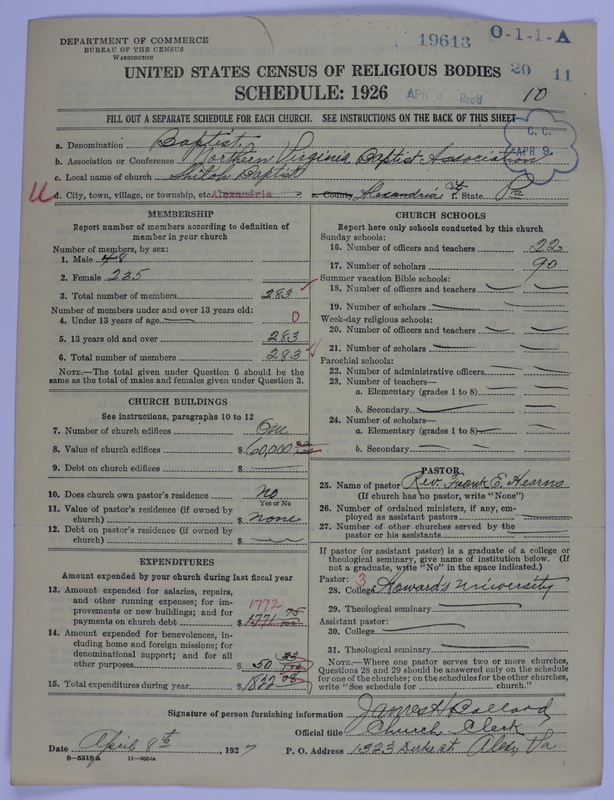 DEPARTMENT OF COMMERCE
BUREAU OF THE CENSUS
WASHINGTON
19613 O-1-1-A
20 11
APR 9 Rec'd
10
UNITED STATES CENSUS OF RELIGIOUS BODIES
SCHEDULE: 1926
FILL OUT A SEPARATE SCHEDULE FOR EACH CHURCH. SEE INSTRUCTIONS ON THE BACK OF THIS SHEET
C. C.
APR 9
a. Denomination Baptist
b. Association or Conference Northern Virginia Baptist Association
c. Local name of church Shiloh Baptist
d. City, town, village, or township, etc. Alexandria e. County Alexandria City f. State Va
MEMBERSHIP
Report number of members according to definition of member in your church
Number of members, by sex:
1. Male 48
2. Female 235
3. Total number of members 283
Number of members under and over 13 years old:
4. Under 13 years of age 0
5. 13 years old and over 283
6. Total number of members 283
NOTE.—The total given under Question 6 should be the same as the total of males and females given under Question 3.
CHURCH BUILDINGS
See instructions, paragraphs 10 to 12
7. Number of church edifices One
8. Value of church edifices $60,000
9. Debt on church edifices $
10. Does church own pastor's residence No
Yes or No
11. Value of pastor's residence (if owned by church) $ none
12. Debt on pastor's residence (if owned by church) $
EXPENDITURES
Amount expended by your church during last fiscal year
13. Amount expended for salaries, repairs, and other running expenses; for improvements or new buildings; and for payments on church debt $ 1771 75
1772
14. Amount expended for benevolences, including home and foreign missions; for denominational support; and for all other purposes $ 50
15. Total expenditures during year $ 1822 08
CHURCH SCHOOLS
Report here only schools conducted by this church
Sunday schools:
16. Number of officers and teachers 22
17. Number of scholars 90
Summer vacation Bible schools:
18. Number of officers and teachers
19. Number of scholars
Week-day religious schools:
20. Number of officers and teachers
21. Number of scholars
Parochial schools:
22. Number of administrative officers
23. Number of teachers—
a. Elementary (grades 1 to 8)
b. Secondary
24. Number of scholars—
a. Elementary (grades 1 to 8)
b. Secondary
PASTOR
25. Name of pastor Rev. Frank E. Hearns
(If church has no pastor, write "None")
26. Number of ordained ministers, if any, employed as assistant pastors
27. Number of other churches served by the pastor or his assistants
If pastor (or assistant pastor) is a graduate of a college or theological seminary, give name of institution below. (If not a graduate, write "No" in the space indicated.)
Pastor: 3
28. College Howard University
29. Theological seminary
Assistant pastor:
30. College
31. Theological seminary
NOTE.—Where one pastor serves two or more churches, Questions 28 and 29 should be answered only on the schedule for one of the churches; on the schedules for the other churches, write "See schedule for church."
Signature of person furnishing information James H Ballard
Official title Church Clerk
Date April 8th, 1927 P. O. Address 1323 Duke st Alex, Va
8—5518a 11—9054a